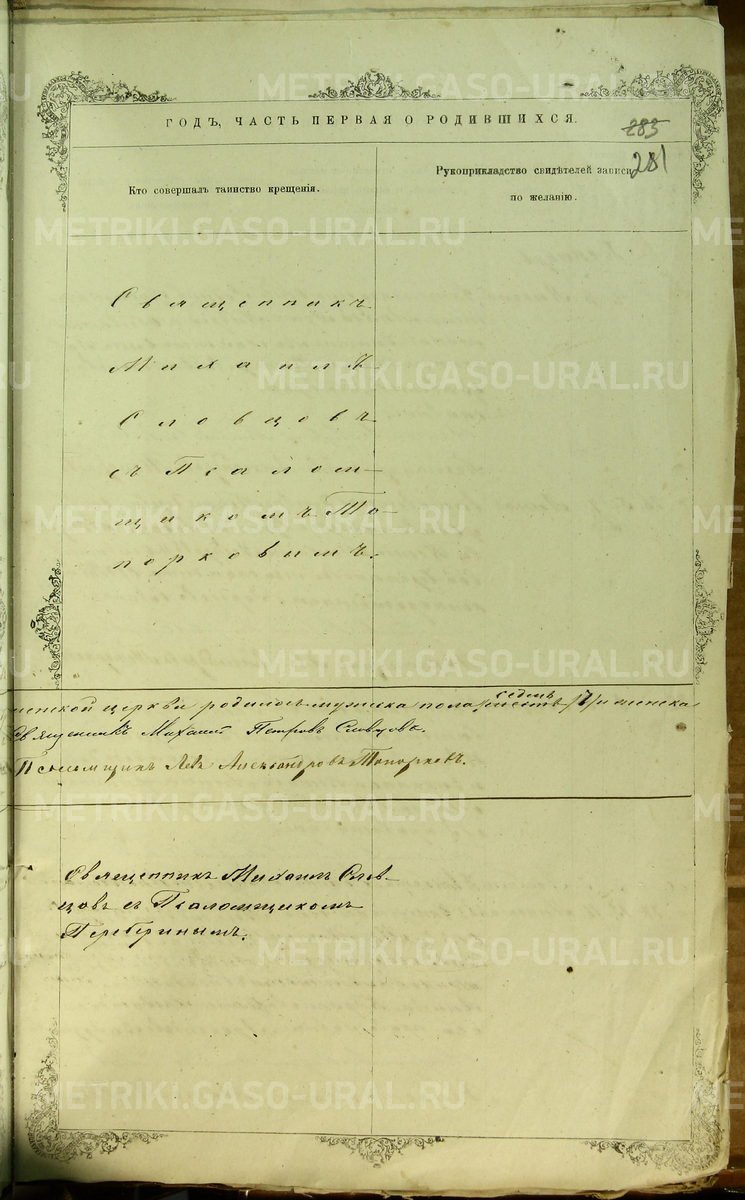 ГОДЪ, ЧАСТЬ ПЕРВАЯ О РОДИВШИХСЯ.
283
281
Кто совершалъ таинство крещенія.
Рукоприкладство свидѣтелей записи
по желанію.
Священникъ
Михаилъ
Словцовъ
съ Псалом-
щикомъ То-
порковымъ.
церкви родилось мужска пола седмь /7/ и женска
Священникъ Михаилъ Петровъ Словцовъ.
Псаломщикъ Левъ Александровъ Топорковъ.
Священникъ Михаилъ Слов-
цовъ съ Псаломщикомъ
METRIKI.GASO-URAL.RU